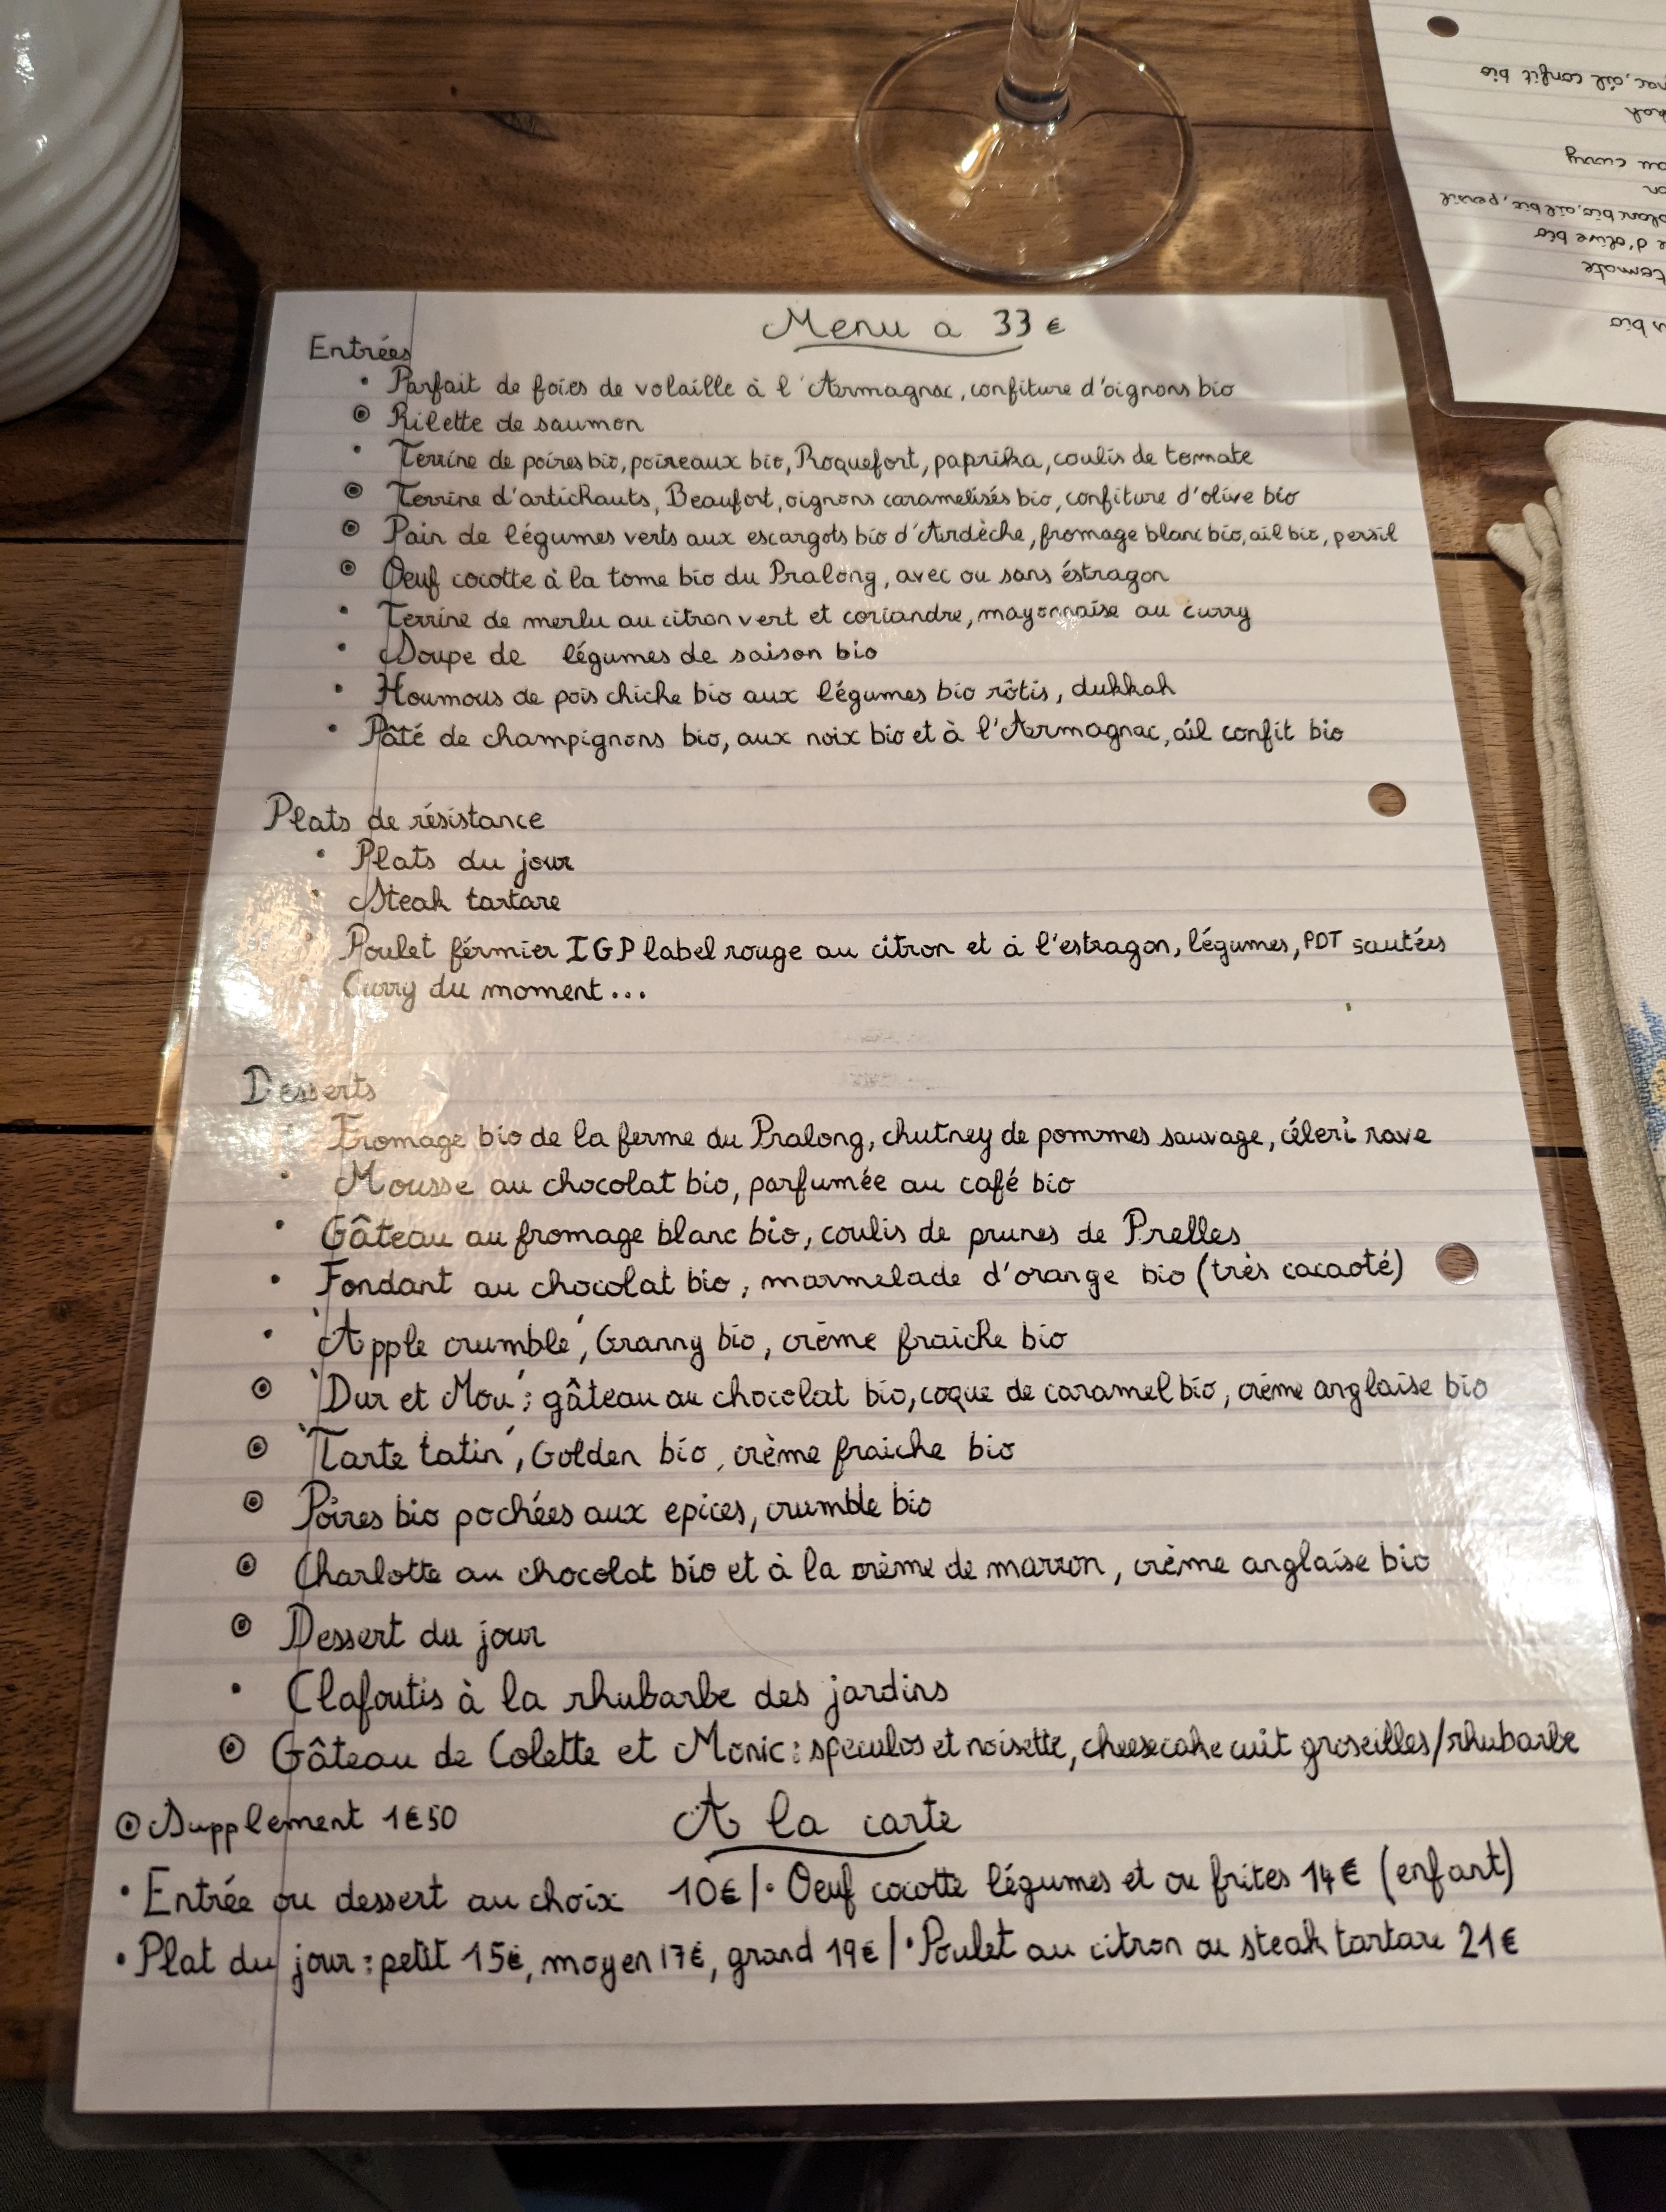 Menu a 33 €
Entrées
• Parfait de foies de volaille à l'Armagnac, confiture d'oignons bio
⊙ Rilette de saumon
• Terrine de poires bio, poireaux bio, Roquefort, paprika, coulis de tomate
⊙ Terrine d'artichauts, Beaufort, oignons caramelisés bio, confiture d'olive bio
⊙ Pain de légumes verts aux escargots bio d'Ardèche, fromage blanc bio, ail bio, persil
⊙ Oeuf cocotte à la tome bio du Pralong, avec ou sans éstragon
• Terrine de merlu au citron vert et coriandre, mayonnaise au curry
• Soupe de légumes de saison bio
• Houmous de pois chiche bio aux légumes bio rôtis, dukkah
• Pâté de champignons bio, aux noix bio et à l'Armagnac, ail confit bio
Plats de résistance
• Plats du jour
• Steak tartare
• Poulet férmier IGP label rouge au citron et à l'estragon, légumes, PDT sautées
• Curry du moment...
Desserts
• Fromage bio de la ferme du Pralong, chutney de pommes sauvage, céleri rave
• Mousse au chocolat bio, parfumée au café bio
• Gâteau au fromage blanc bio, coulis de prunes de Prelles
• Fondant au chocolat bio, marmelade d'orange bio (très cacaoté)
• 'Apple crumble', Granny bio, crème fraiche bio
⊙ 'Dur et Mou': gâteau au chocolat bio, coque de caramel bio, crème anglaise bio
⊙ 'Tarte tatin', Golden bio, crème fraiche bio
⊙ Poires bio pochées aux epices, crumble bio
⊙ Charlotte au chocolat bio et à la crème de marron, crème anglaise bio
⊙ Dessert du jour
• Clafoutis à la rhubarbe des jardins
⊙ Gâteau de Colette et Monic: speculos et noisette, cheesecake cuit groseilles/rhubarbe
⊙ Supplement 1€50
A la carte
• Entrée ou dessert au choix 10€ | • Oeuf cocotte légumes et ou frites 14€ (enfant)
• Plat du jour: petit 15€, moyen 17€, grand 19€ | • Poulet au citron ou steak tartare 21€
ail confit bio
au curry
blanc bio, ail bio, persil
d'olive bio
tomate
bio